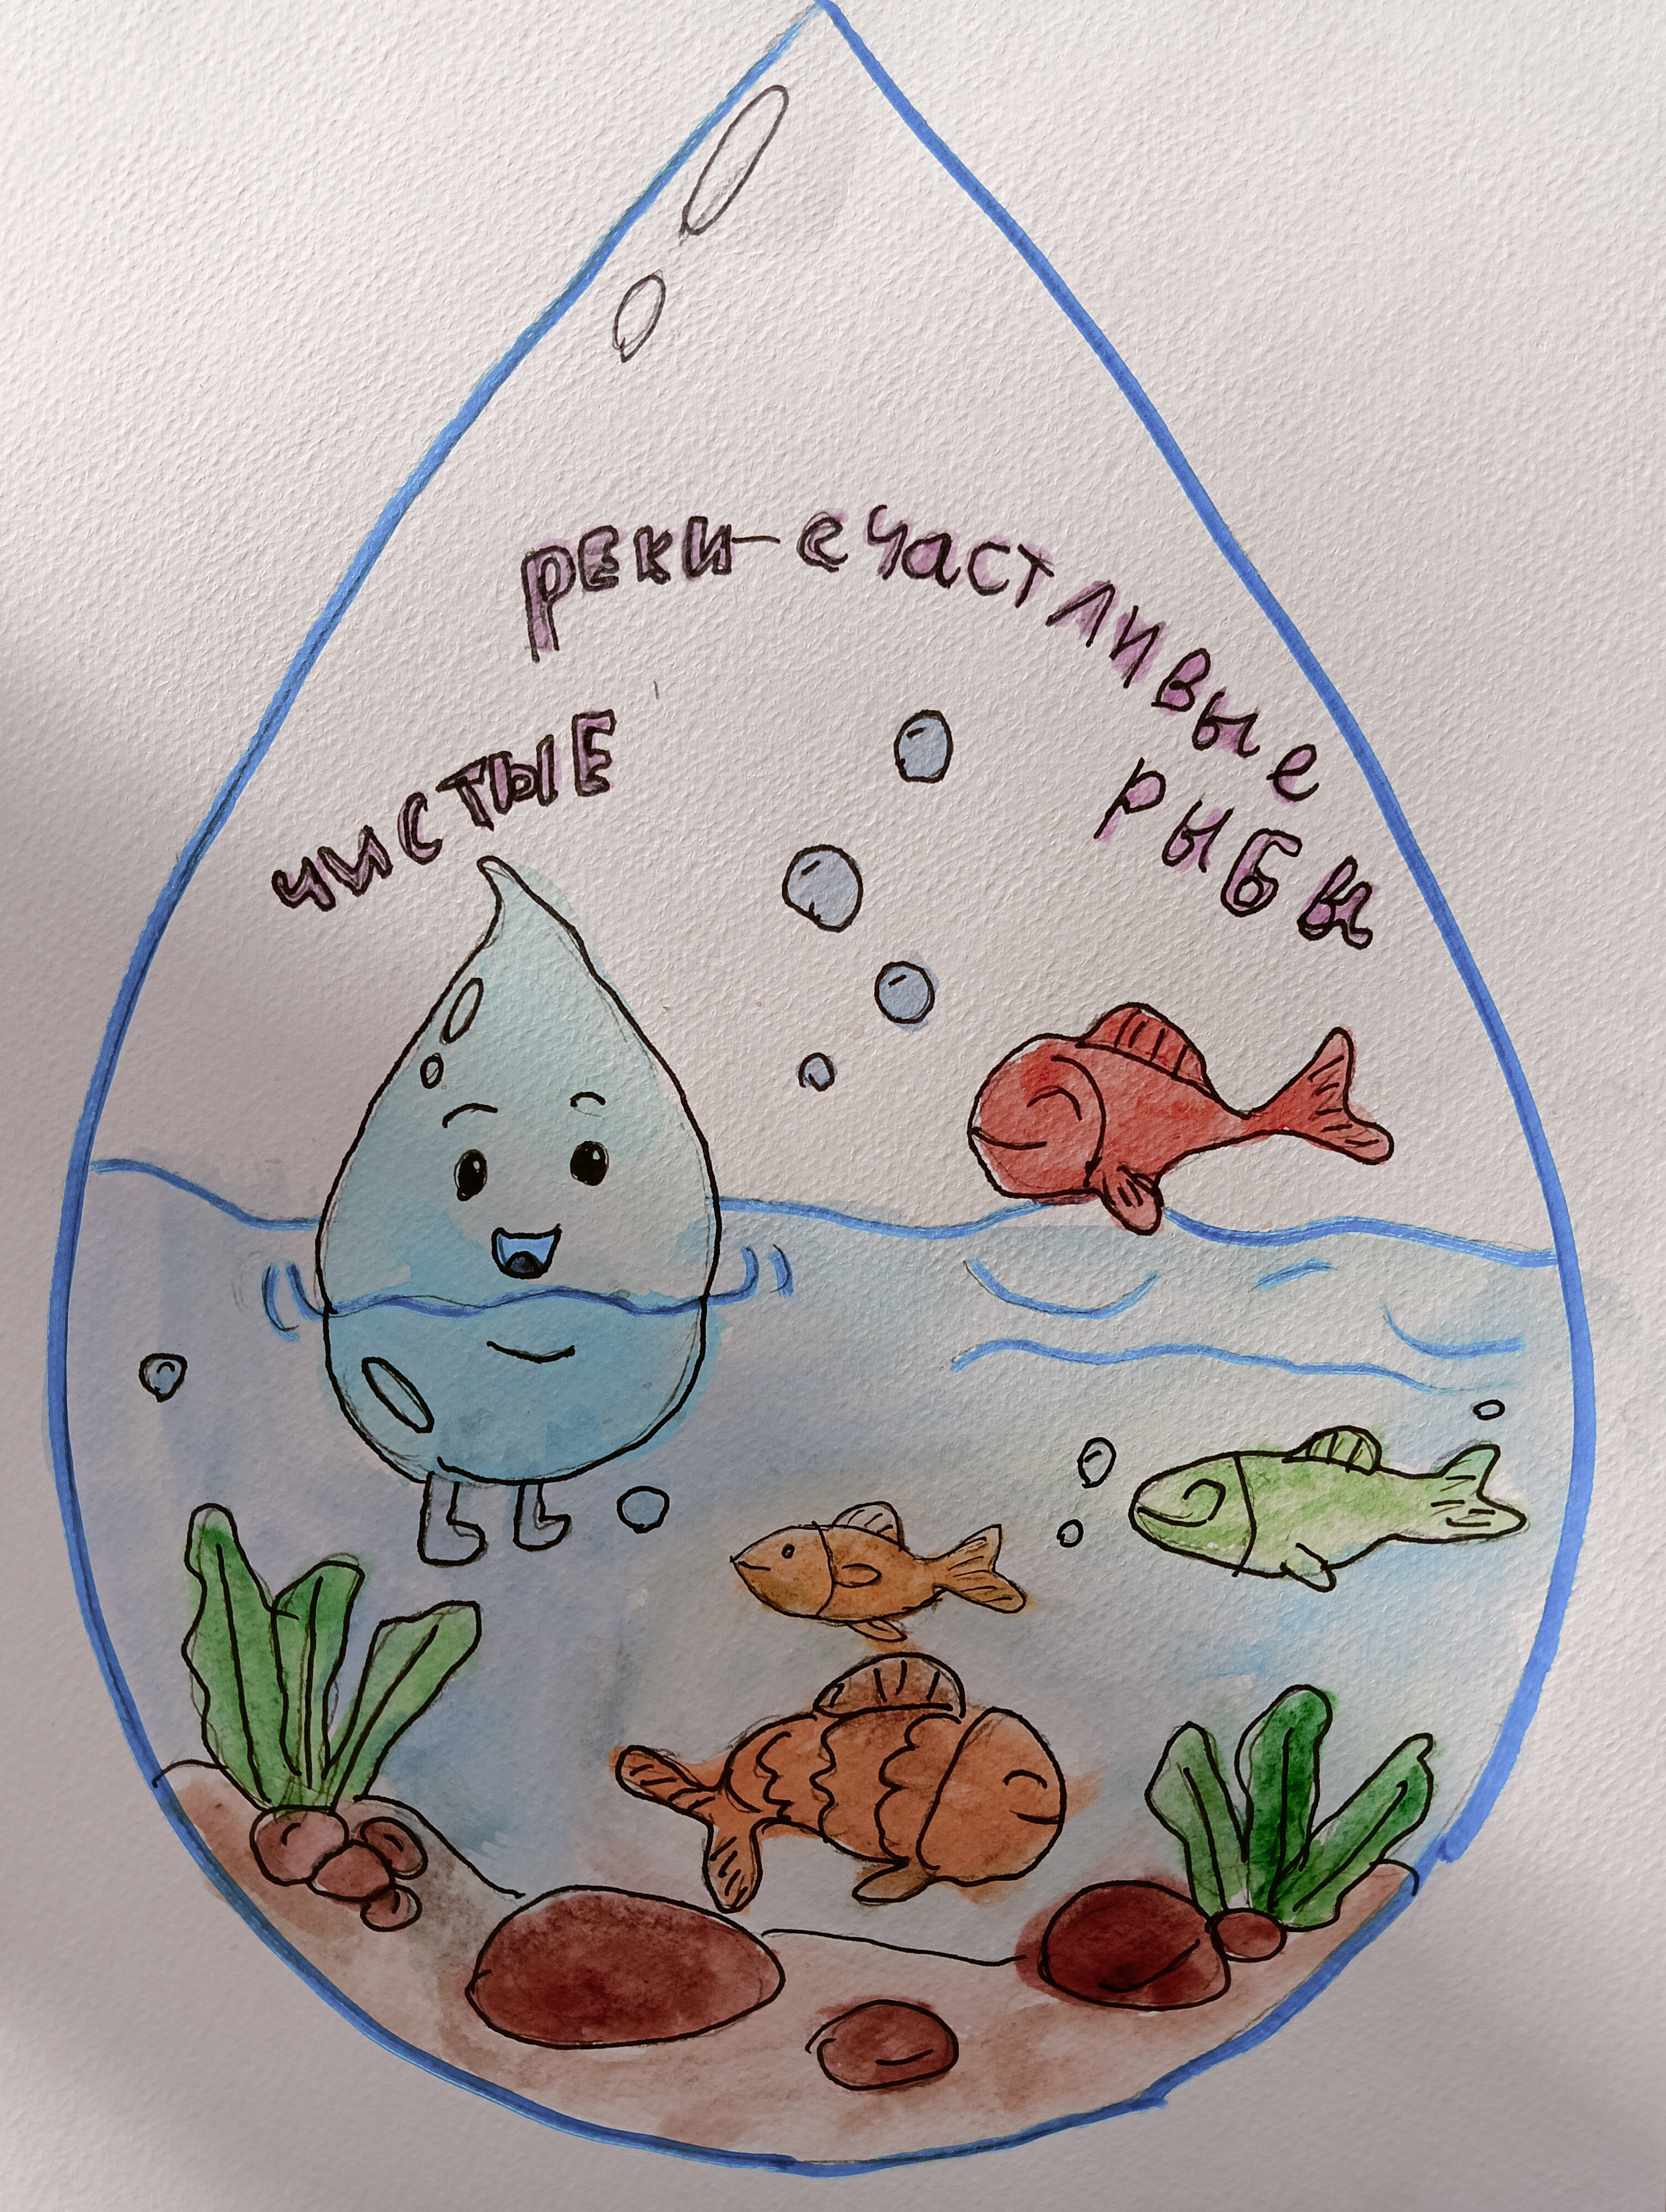 чистЫЕ
реки-счастливые
рыбы